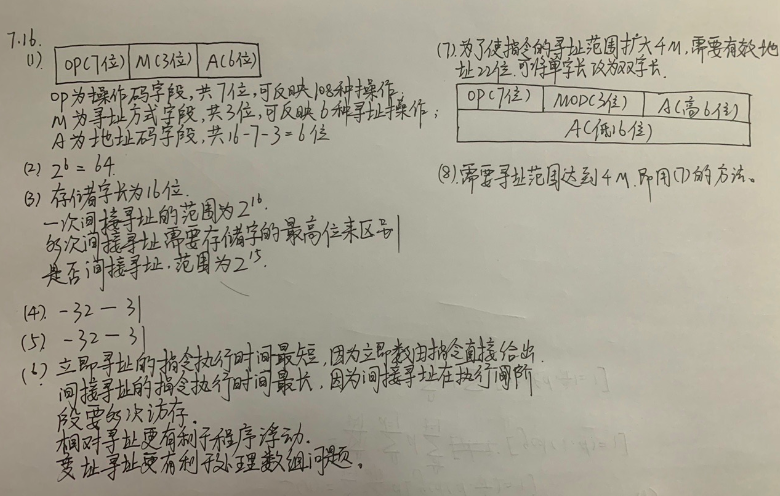 7.16.
(1). OP(7位) M(3位) A(6位)
OP为操作码字段,共7位,可反映108种操作;
M为寻址方式字段,共3位,可反映6种寻址操作;
A为地址码字段,共16-7-3=6位
(2) 2^6 = 64.
(3) 存储字长为16位.
一次间接寻址的范围为2^16.
多次间接寻址需要存储字的最高位来区别
是否间接寻址.范围为2^15.
(4). -32 — 31
(5) -32 — 31
(6) 立即寻址的指令执行时间最短,因为立即数由指令直接给出.
间接寻址的指令执行时间最长,因为间接寻址在执行阶
段要多次访存.
相对寻址更有利于程序浮动.
变址寻址更有利于处理数组问题。
(7).为了使指令的寻址范围扩大4M,需要有效地
址22位.可将单字长改为双字长.
OP(7位) MOD(3位) A(高6位)
A(低16位)
(8).需要寻址范围达到4M.即用(7)的方法。